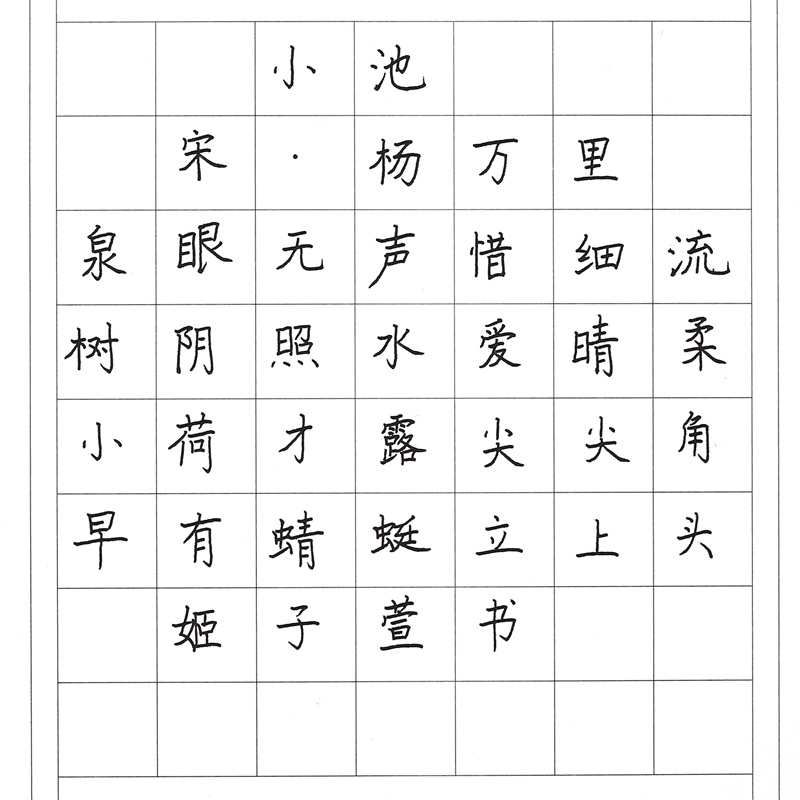 小池
宋·杨万里
泉眼无声惜细流
树阴照水爱晴柔
小荷才露尖尖角
早有蜻蜓立上头
姬子萱书